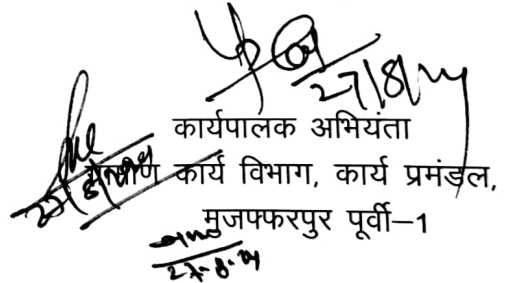 27/8/24
कार्यपालक अभियंता
ग्रामीण कार्य विभाग, कार्य प्रमंडल,
मुजफ्फरपुर पूर्वी–1
27-8-24